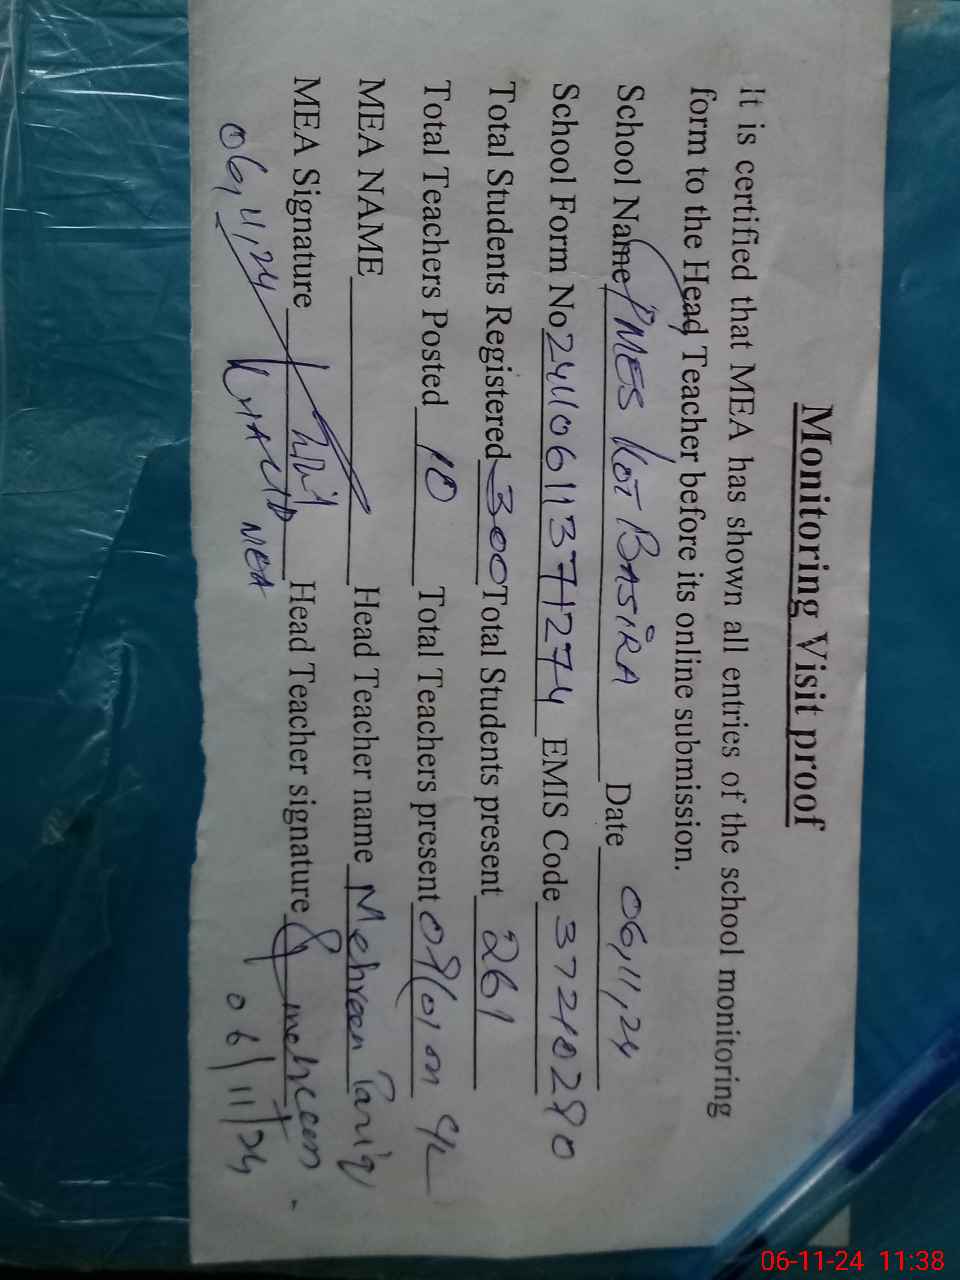 Monitoring Visit proof
It is certified that MEA has shown all entries of the school monitoring
form to the Head Teacher before its online submission.
School Name PMES KOT BASIRA Date 06,11,24
School Form No 241106113771274 EMIS Code 37210280
Total Students Registered 300 Total Students present 261
Total Teachers Posted 10 Total Teachers present 09(01 on
MEA NAME Head Teacher name Mehreen Tariq
MEA Signature Head Teacher signature mehreen
06,11,24 MEA 06/11/24
06-11-24 11:38